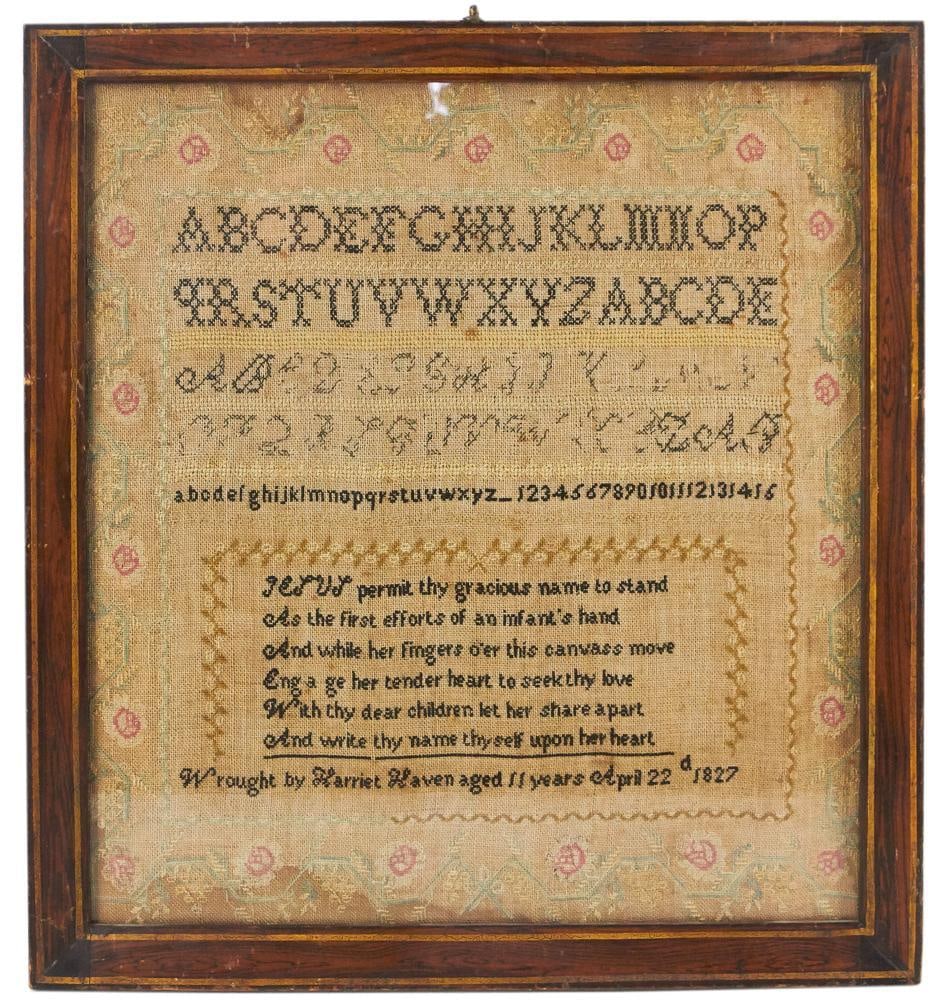 ABCDEFGHIJKLMNOP
QRSTUVWXYZABCDE
AB
ZAB
abcdefghijklmnopqrstuvwxyz_1234567890101112131415
JESUS permit thy gracious name to stand
As the first efforts of an infant's hand
And while her fingers o'er this canvass move
Eng a ge her tender heart to seek thy love
With thy dear children let her share apart
And write thy name thyself upon her heart
Wrought by Harriet Haven aged 11 years April 22d 1827